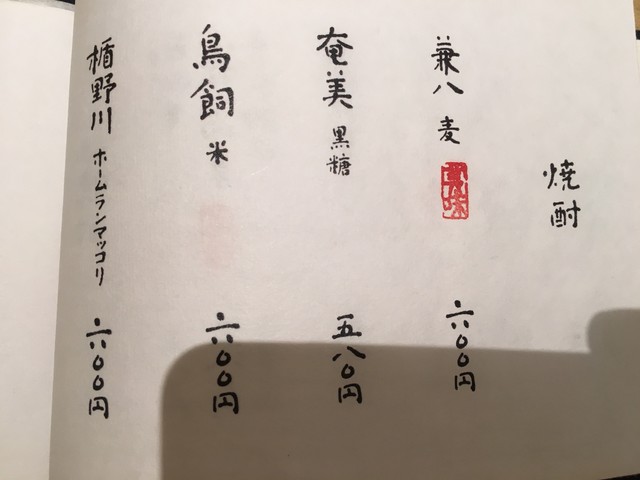 焼酎
兼八 麦 六〇〇円
奄美 黒糖 五八〇円
鳥飼 米 六〇〇円
楯野川 ホームランマッコリ 六〇〇円